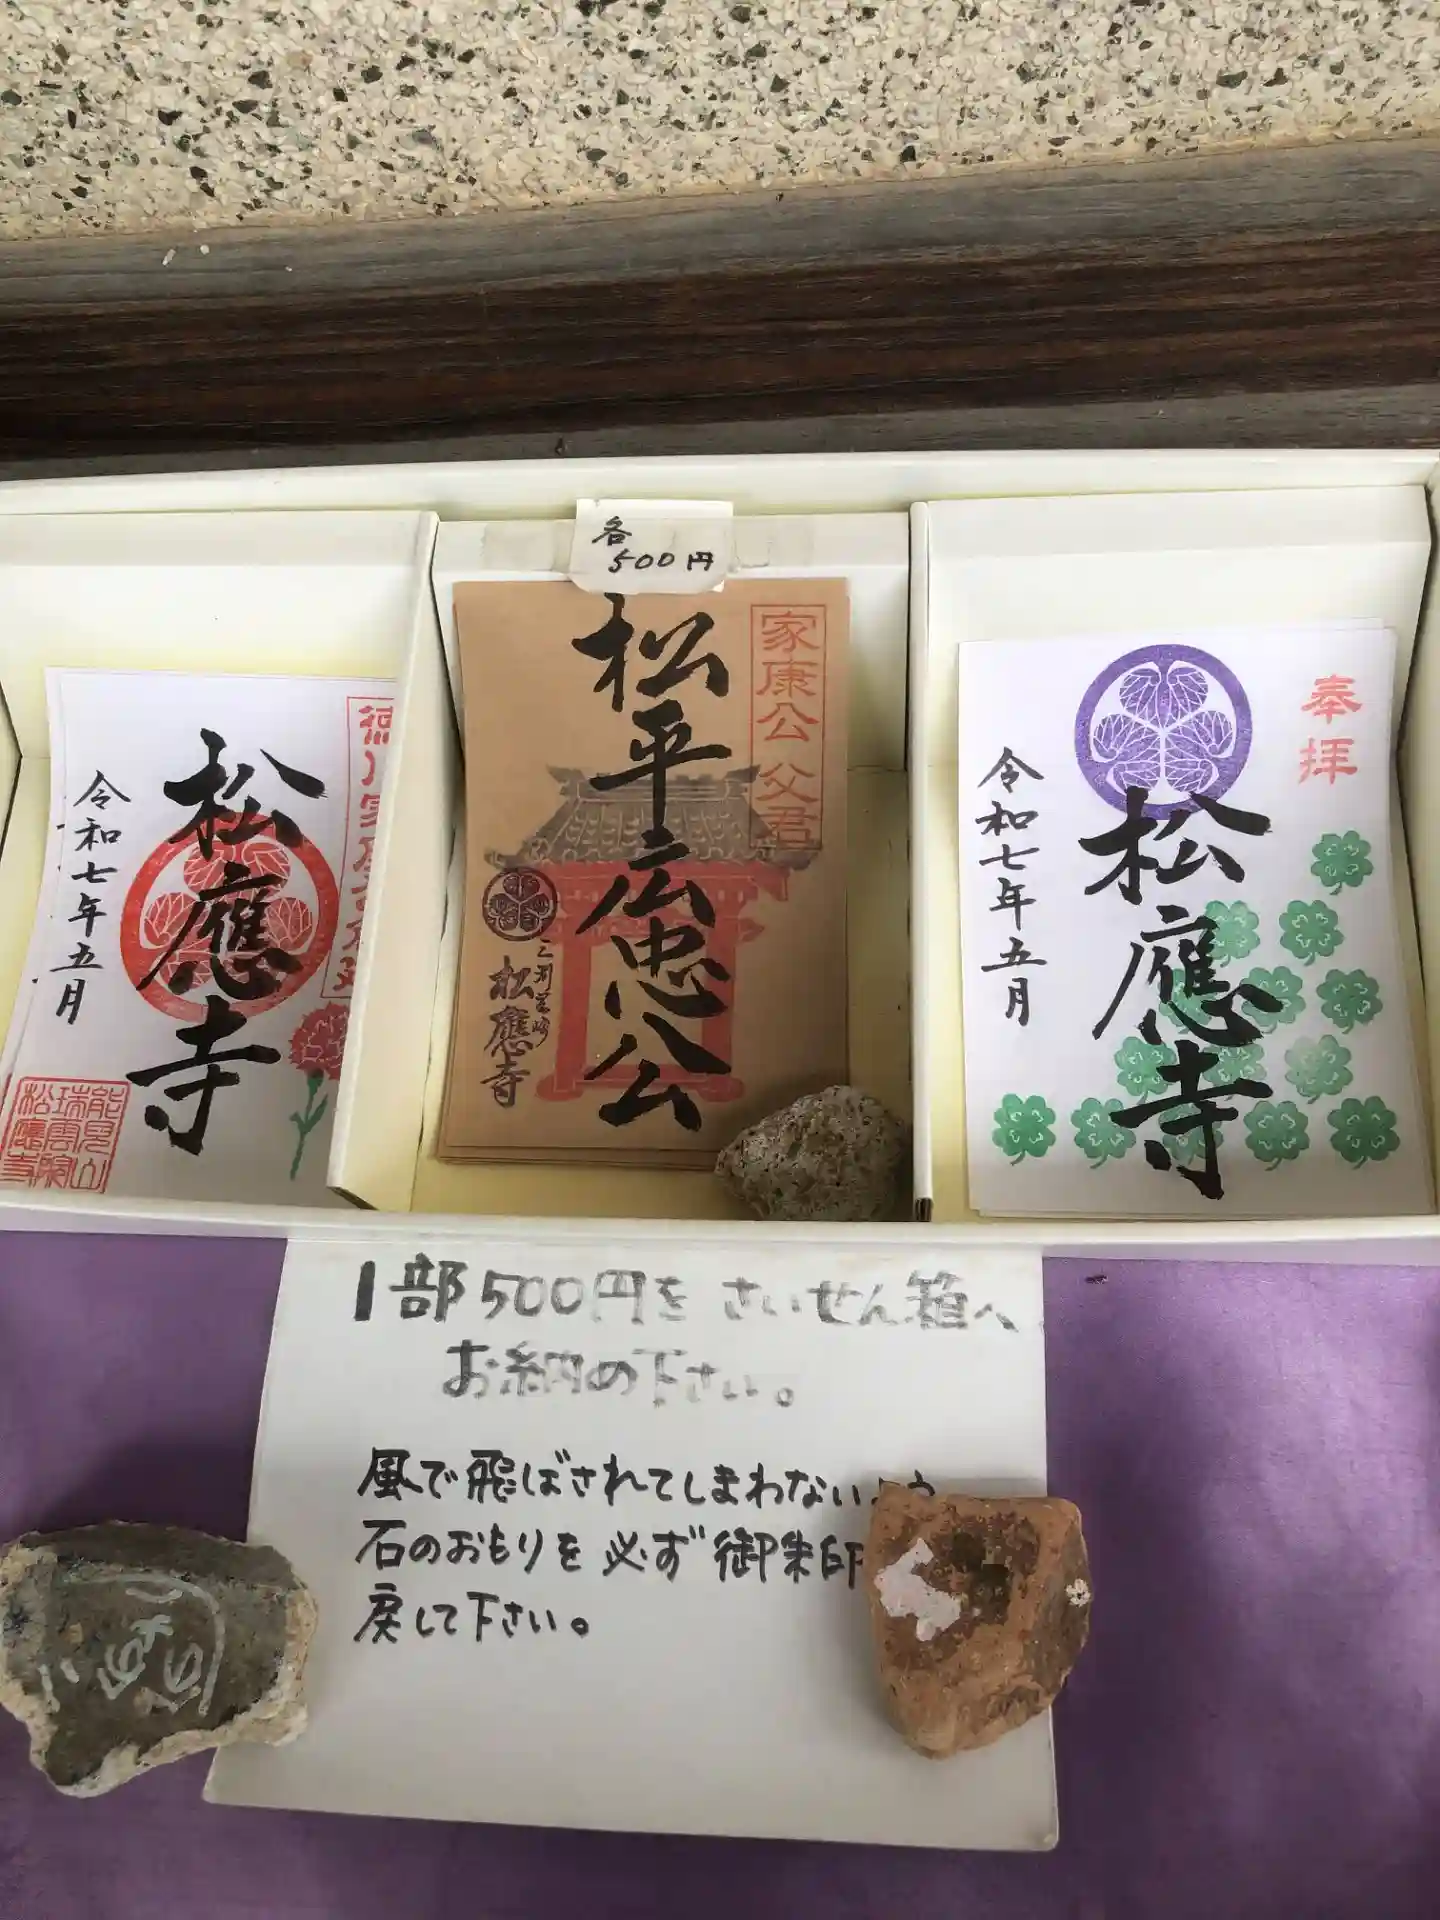 各
500円
松應寺
令和七年五月
能見山
瑞雲院
松應寺
松平広忠公
家康公 父君
松應寺
奉拝
松應寺
令和七年五月
1部500円をさいせん箱へ
お納め下さい。
風で飛ばされてしまわないよう
石のおもりを必ず御朱印
戻して下さい。